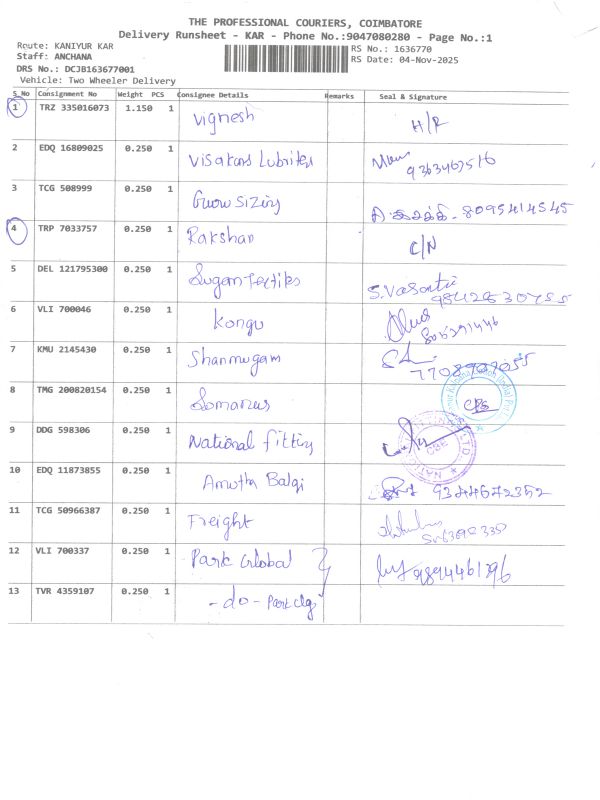 THE PROFESSIONAL COURIERS, COIMBATORE
Delivery Runsheet - KAR - Phone No.:9047080280 - Page No.:1
Route: KANIYUR KAR
RS No.: 1636770
Staff: ANCHANA
RS Date: 04-Nov-2025
DRS No.: DCJB163677001
Vehicle: Two Wheeler Delivery
S_No Consignment No Weight PCS Consignee Details Remarks Seal & Signature
1 TRZ 335016073 1.150 1 Vignesh H/R
2 EDQ 16809025 0.250 1 Visakans Lubrites 9363463516
3 TCG 508999 0.250 1 Sizing 8095414545
4 TRP 7033757 0.250 1 Rakshan C/N
5 DEL 121795300 0.250 1 Sugan S.Vasanti
6 VLI 700046 0.250 1 Kongu
7 KMU 2145430 0.250 1 Shanmugam
8 TMG 200820154 0.250 1
9 DDG 598306 0.250 1 National fitting
10 EDQ 11873855 0.250 1 Amutha Balaji 9344672352
11 TCG 50966387 0.250 1 Freight
12 VLI 700337 0.250 1 Park Global
13 TVR 4359107 0.250 1 -do- Park